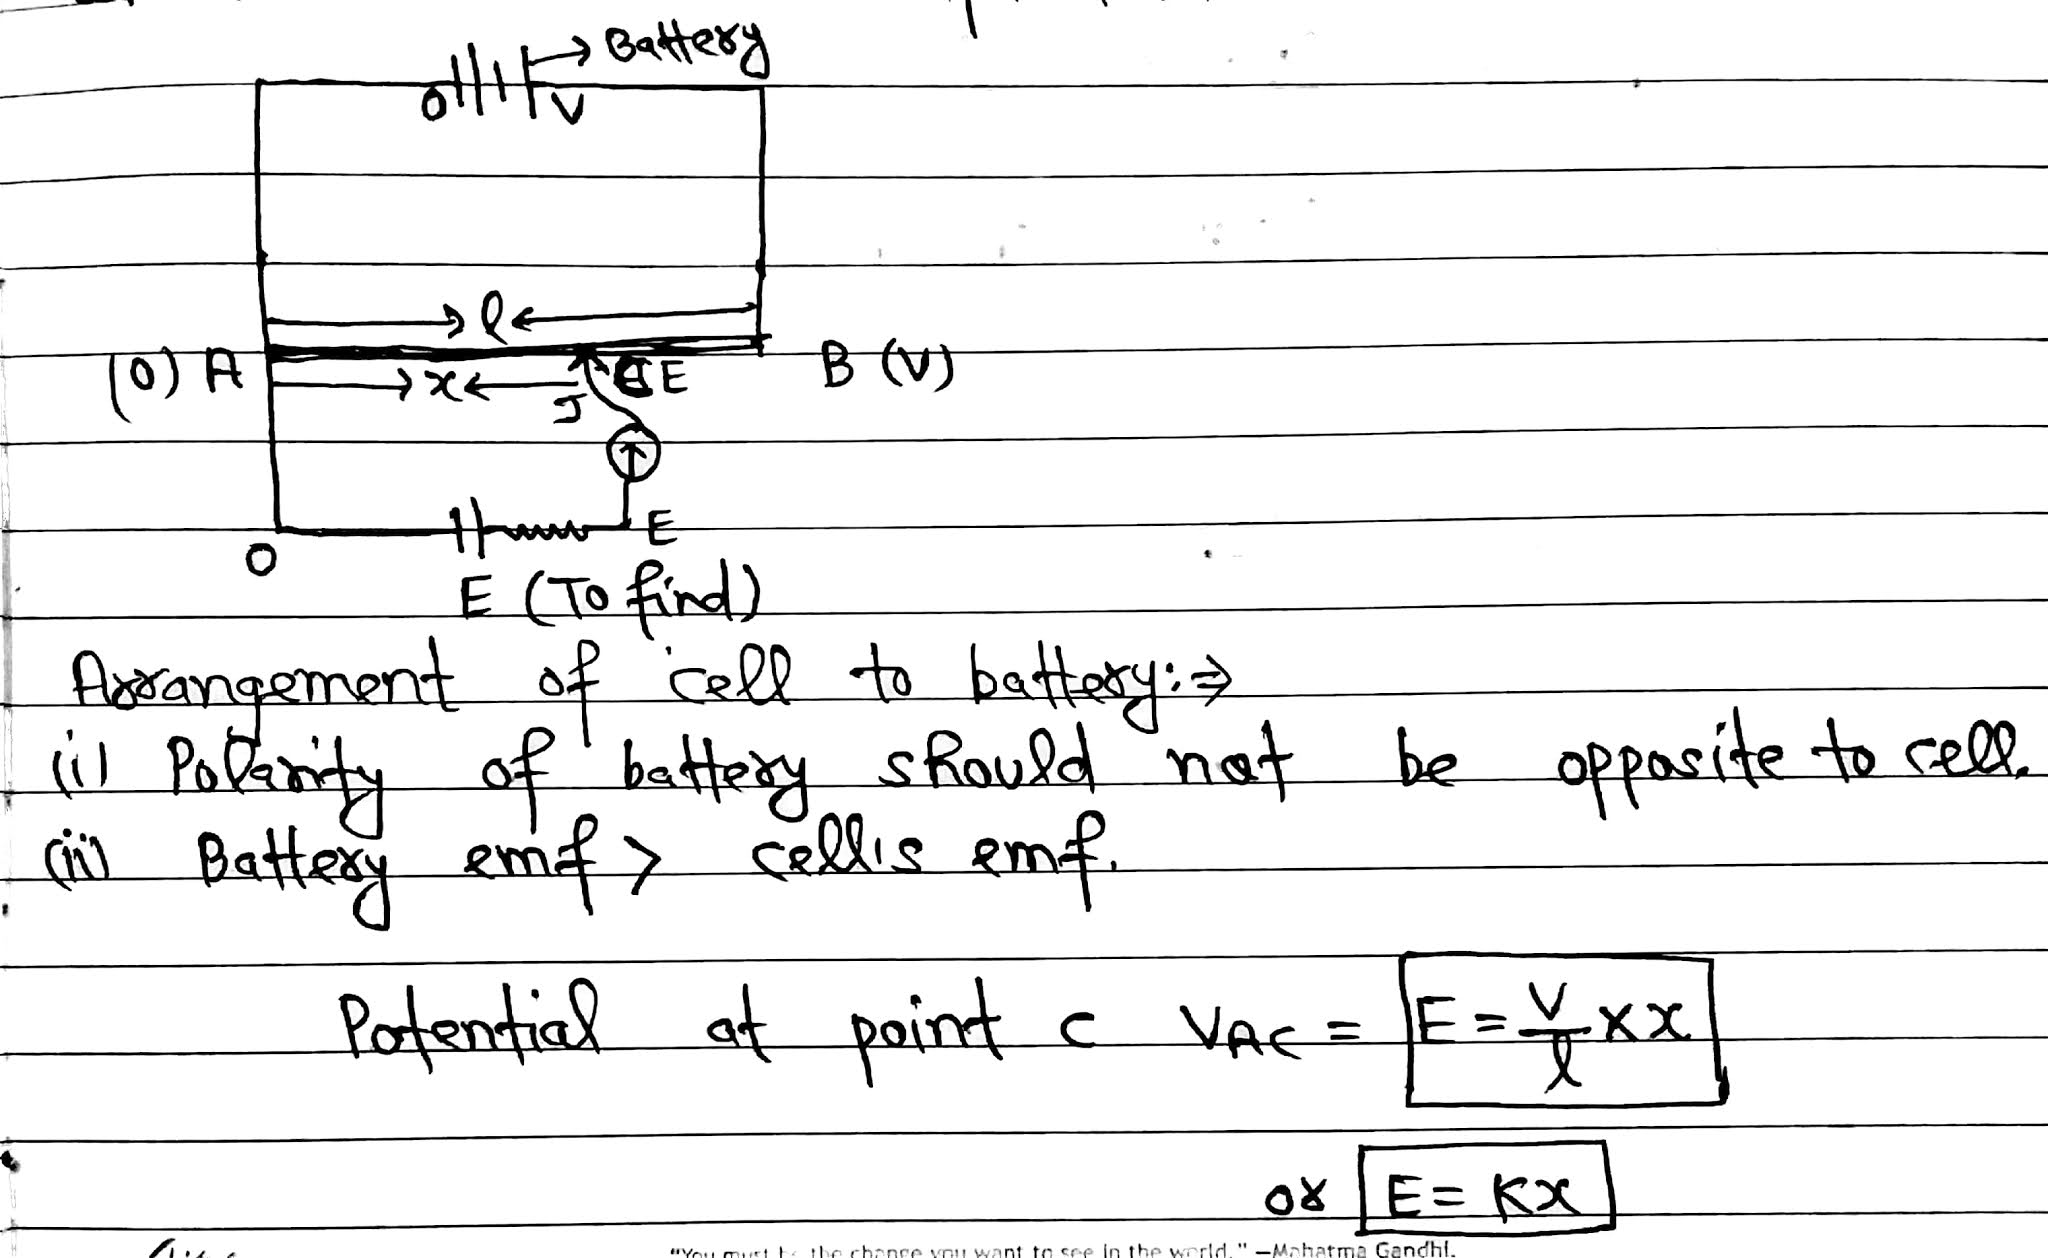 → Battery
0 V
l
(0) A B (V)
x J C E
E
0
E (To find)
Arrangement of cell to battery:⇒
(i) Polarity of battery should not be opposite to cell.
(ii) Battery emf > cell's emf.
Potential at point C VAC = E = V/l × x
or E = Kx
"You must be the change you want to see in the world." —Mahatma Gandhi.